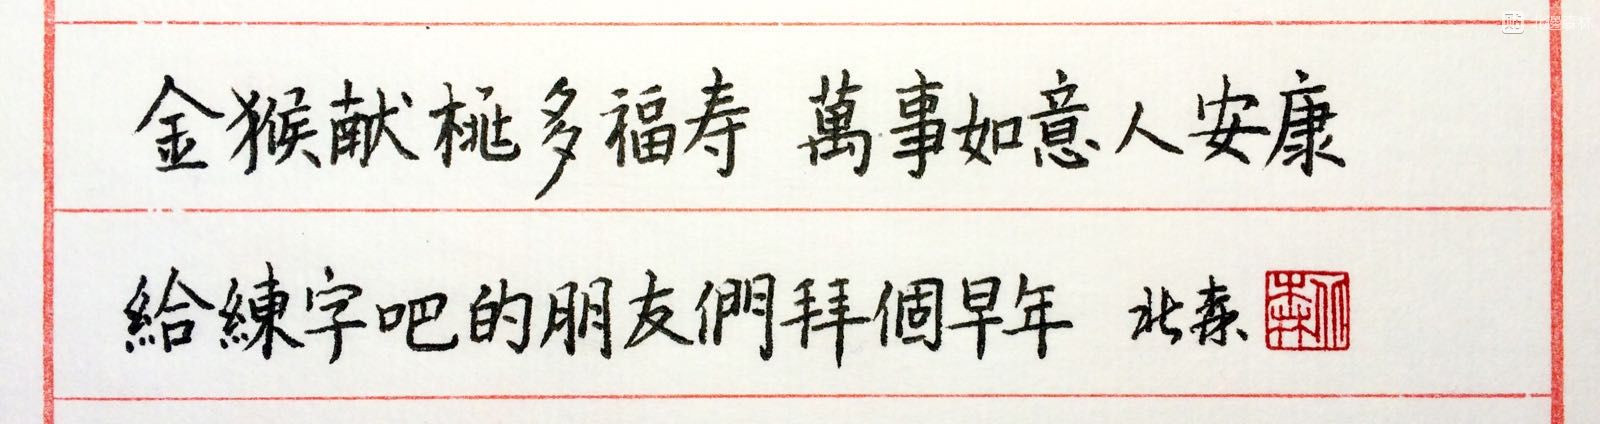 金猴献桃多福寿 萬事如意人安康
給練字吧的朋友們拜個早年 北森